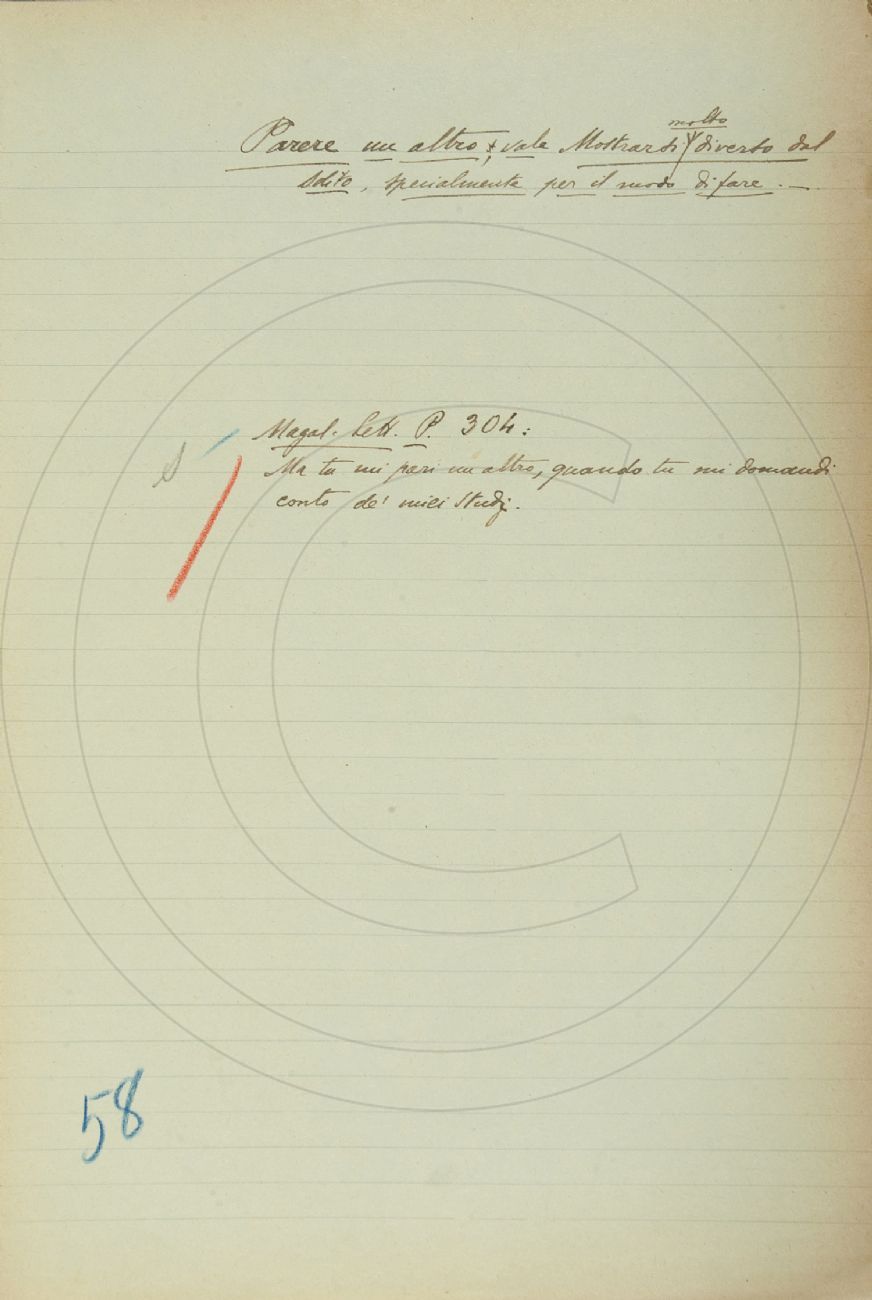 molto
Parere un altro, vale Mostrarsi diverso dal
solito, specialmente per il modo di fare. —
Magal. Lett. P. 304:
Ma tu mi pari un altro, quando tu mi domandi
conto de' miei studj.
S
58